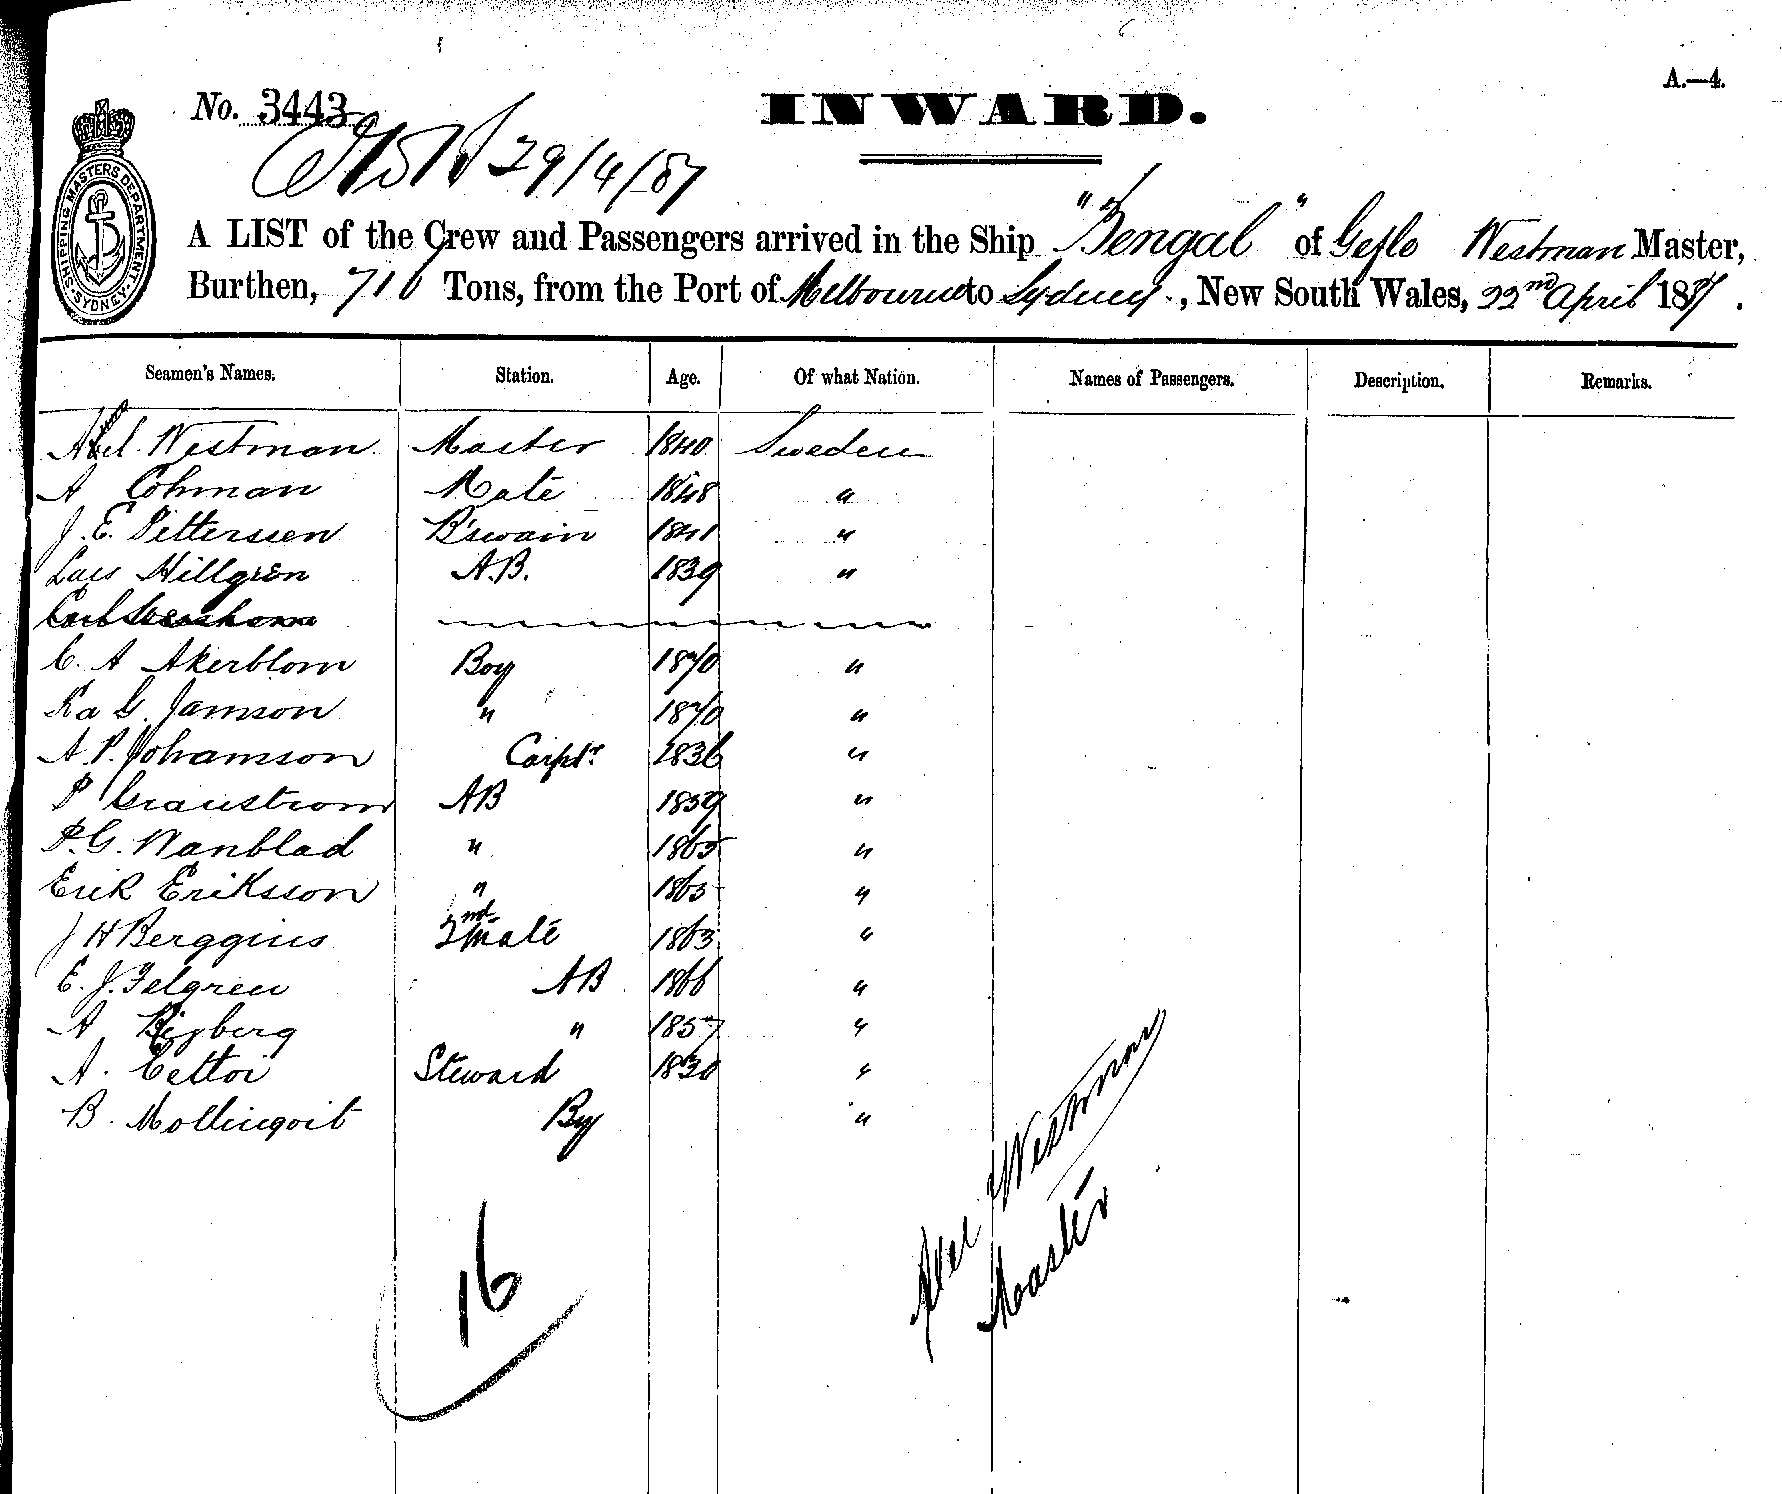 A.—4.
No. 3443
INWARD.
29/4/87
SHIPPING MASTERS DEPARTMENT. SYDNEY.
A LIST of the Crew and Passengers arrived in the Ship "Bengal" of Gefle Westman Master,
Burthen, 710 Tons, from the Port of Melbourne to Sydney, New South Wales, 22nd April 1887.
Seamen's Names. Station. Age. Of what Nation. Names of Passengers. Description. Remarks.
Westman Master 1840 Sweden
A Cohman Mate 1848 "
J. E. Pettersen B'swain 1841 "
Lars Hillgren A.B. 1839 "
C. A Akerblom Boy 1870 "
G. Jamson " 1870 "
A. P. Johamson Carptr 1836 "
P Granstrom AB 1859 "
P. G. Wanblad " 1865 "
Erik Eriksson " 1865 "
J H Berggius 2nd Mate 1863 "
E. J. Felgren AB 1866 "
A " 1857 "
A. Steward 1830 "
B. Boy "
16
Westman
Master